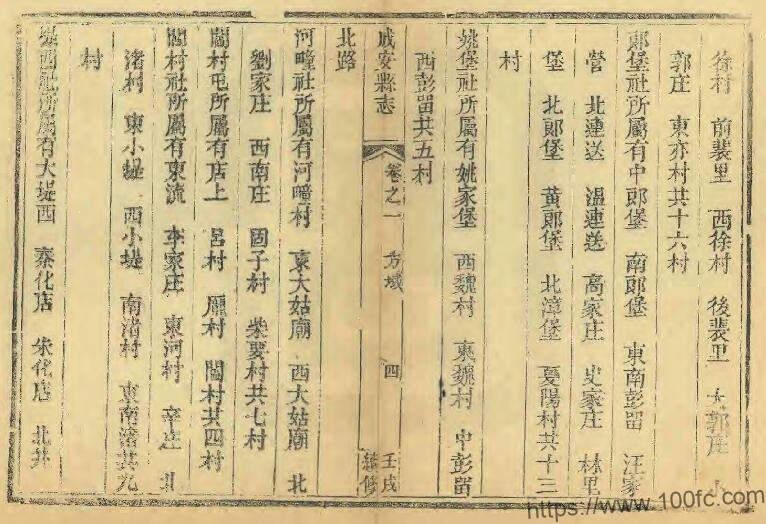 徐村 前裴里 西徐村 後裴里 大郭庄 小
郭庄 東亦村共十六村
郎堡社所屬有中郎堡 南郎堡 東南彭留 汪家
營 北連送 温連送 高家庄 史家庄 林里
堡 北郎堡 黄郎堡 北漳堡 夏陽村共十三
村
姚堡社所屬有姚家堡 西魏村 東魏村 中彭留
西彭留共五村
成安縣志 卷之一 方域 四 壬戌續修
北路
河疃社所屬有河疃村 東大姑廟 西大姑廟 北
劉家庄 西南庄 固子村 柴要村共七村
閻村屯所屬有店上 呂村 龐村 閻村共四村
閻村社所屬有東流 李家庄 東河村 辛庄 北
渚村 東小堤 西小堤 南渚村 東南渚共九
村
堤西社所屬有大堤西 秦化店 朱化店 北井
https://www.100fc.com